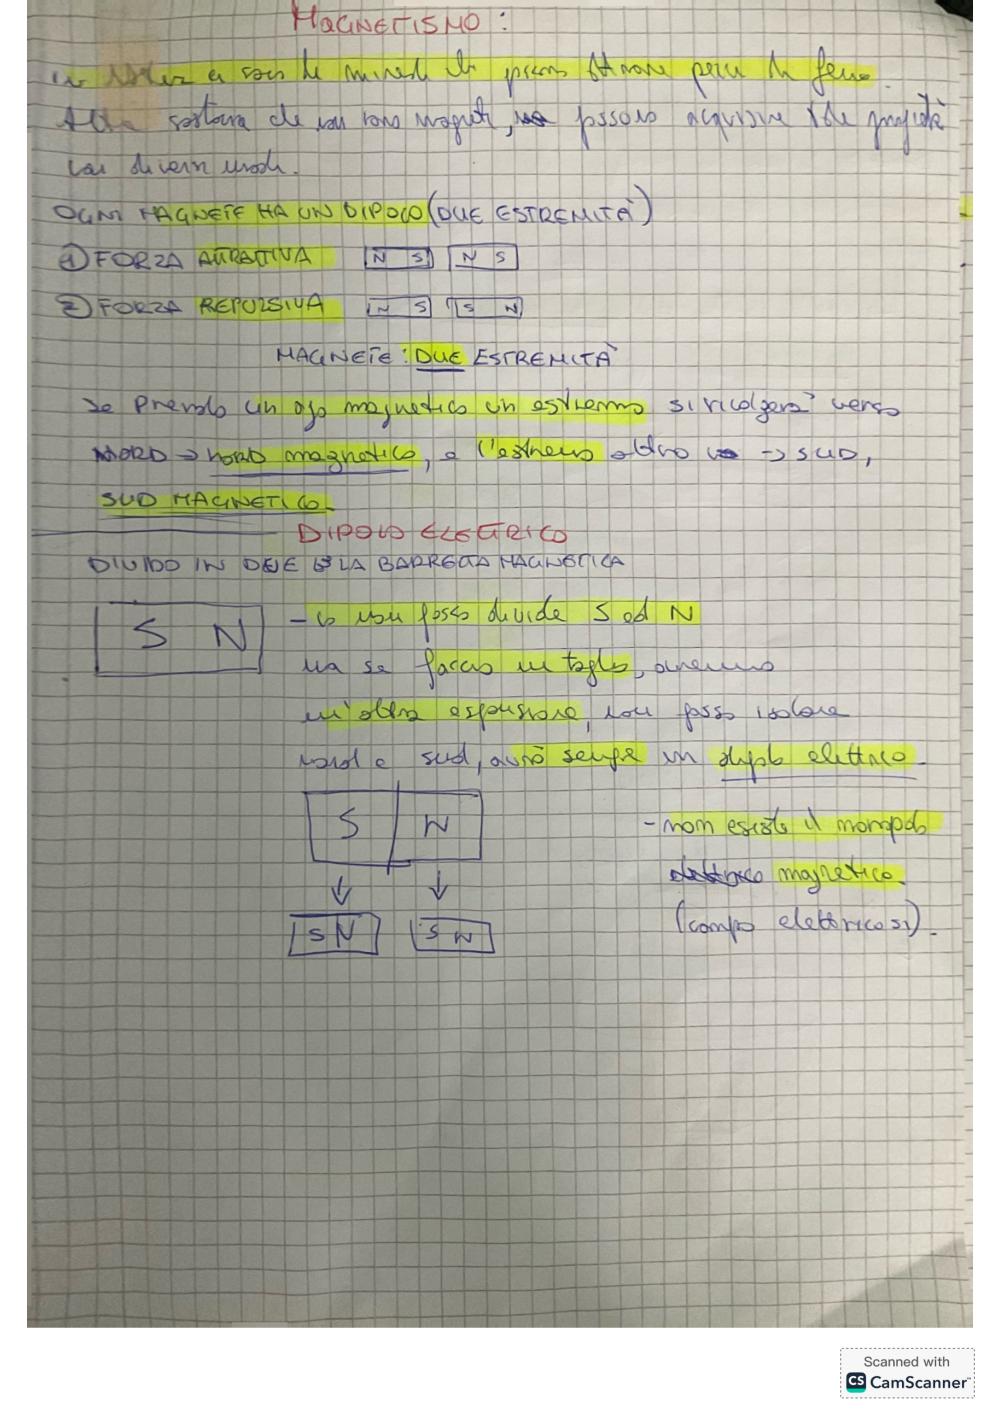 MAGNETISMO:
In natura ci sono de minerali che possono attirare pezzi di ferro.
Altre sostanze che non sono magneti, possono acquisire tale proprietà
con diversi modi.
OGNI MAGNETE HA UN DIPOLO (DUE ESTREMITÀ)
1) FORZA ATTRATTIVA N S N S
2) FORZA REPULSIVA N S S N
MAGNETE: DUE ESTREMITÀ
Se prendo un ago magnetico un estremo si rivolgerà verso
NORD → nord magnetico, e l'estremo altro → SUD,
SUD MAGNETICO.
DIPOLO ELETTRICO
DIVIDO IN DUE LA BARRETTA MAGNETICA
S N
- io non posso divide S ed N
ma se faccio un taglio, avremo
un'altra espansione, non posso isolare
nord e sud, avrò sempre un dipolo elettrico.
S N
- non esiste il monopolo
elettrico magnetico.
(campo elettrico sì).
S N S N
Scanned with
CS CamScanner